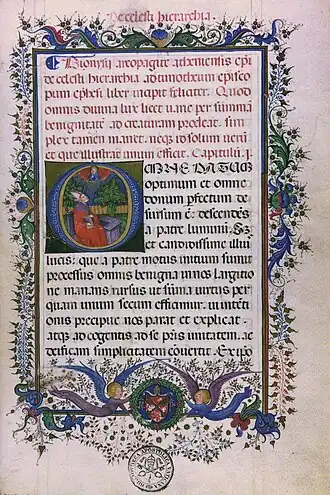 De celesti hierarchia.
Dionysii areopagite atheniensis epi
de celesti hierarchia ad timotheum episco
pum ephesi liber incipit feliciter. Quod
omnis divina lux licet varie per summā
benignitatē ad creaturam prodeat. sim
plex tamen manet. neqz id solum verū
et que illustrat unum efficit. Capitulū .I.
OMNE DATUM
optimum et omne
donum pfectum de
sursum ē: descendēs
a patre luminū. Sz
et
lucis: que a patre motus initium sumit
processus omnis benigna in nos largitio
ne manans rursus ut summa virtus per
quam unum secum efficimur. in intēti
onis precipue nos parat et explicat.
atqz ad cogentis ad se pris unitatem. ac
deificam simplicitatem cōvertit. Ex ipo